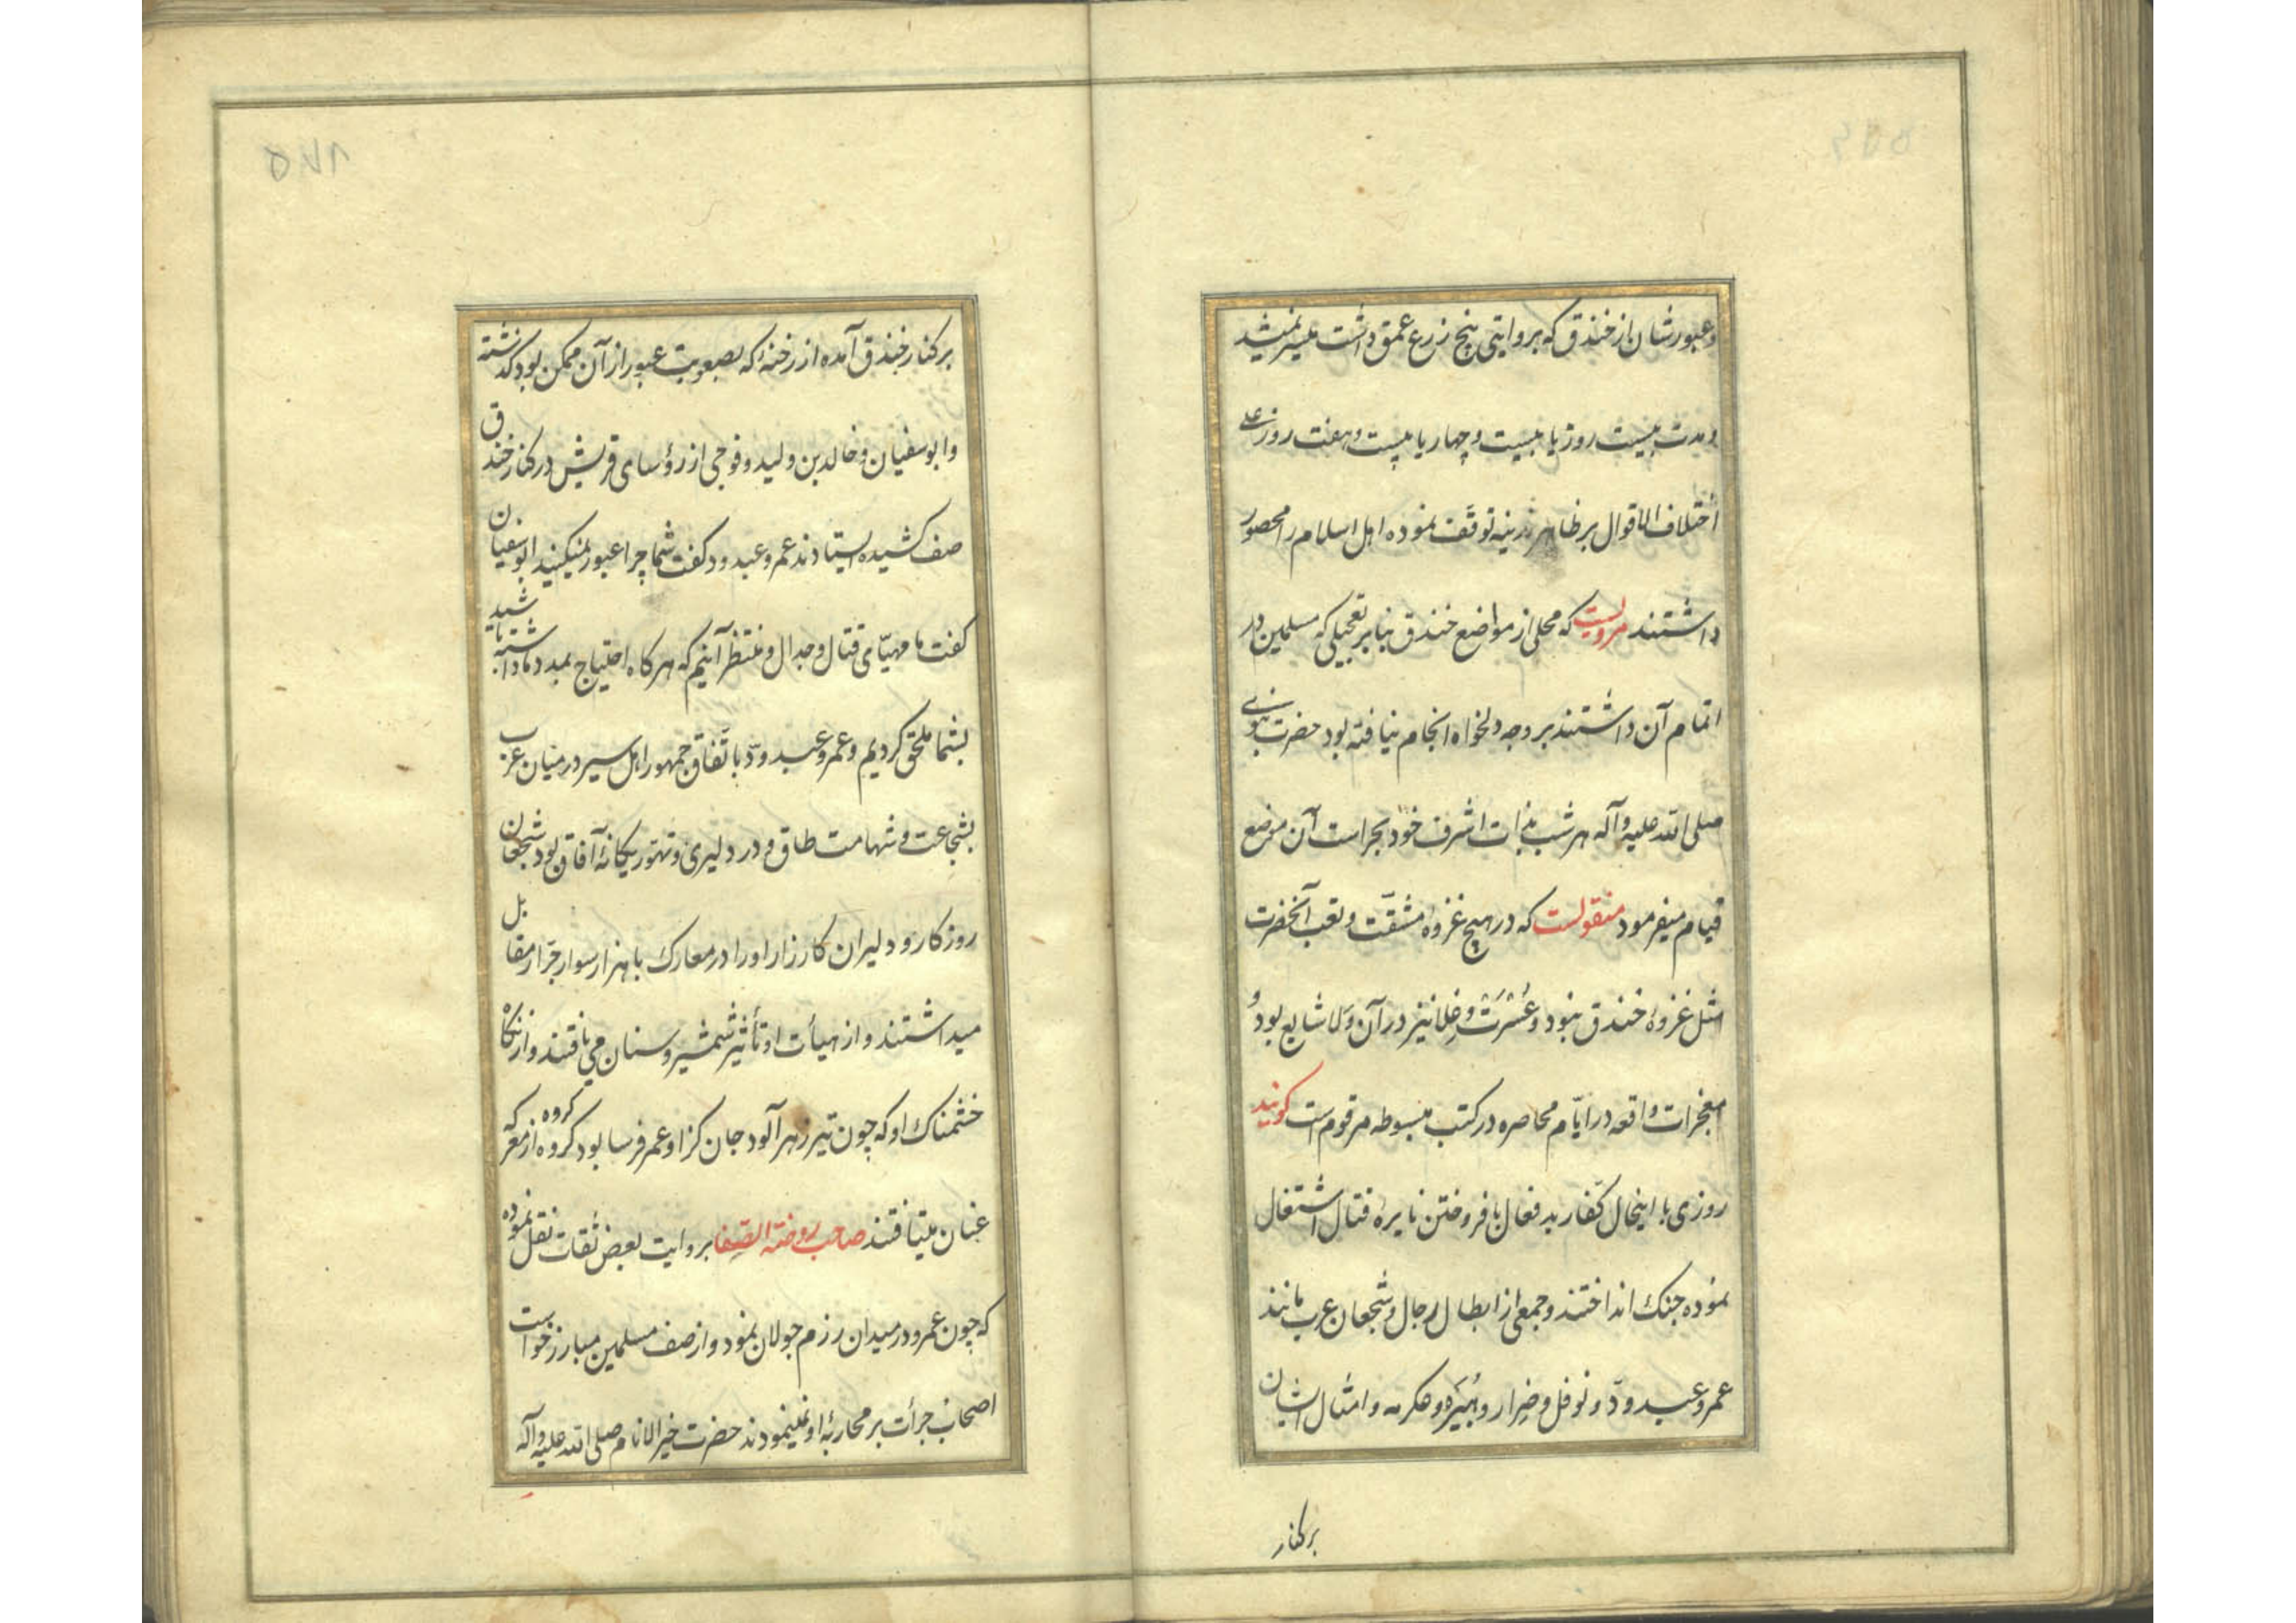 وعبورشان از خندق که بروایتی پنج زرع عمق داشت میسر نمیشد
ومدت بیست روز یا بیست وچهار یا بیست وهفت روز علی
اختلاف الاقوال بر ظاهر مدینه توقف نموده اهل اسلام را محصور
داشتند مرویست که محلی از مواضع خندق بنابر تعجیلی که مسلمین در
اتمام آن داشتند بر وجه دلخواه انجام نیافته بود حضرت نبوی
صلی الله علیه وآله هر شب بذات اشرف خود بحراست آن موضع
قیام میفرمود منقولست که در هیچ غزوه مشقت وتعب آنحضرت
مثل غزوهٔ خندق نبود وعسرت وغلا نیز در آن ولا شایع بود و
معجزات واقعه در ایّام محاصره در کتب مبسوطه مرقوم است کویند
روزی با اینحال کفّار بدفعال بافروختن نایرهٔ قتال اشتغال
نموده جنک انداختند وجمعی از ابطال رجال وشجعان عرب مانند
عمرو عبد ودّ ونوفل وضرار وهبیره وعکرمه وامثال ایشان
بر کنار
۵۷۸
بر کنار خندق آمده از رخنهٔ که بصعوبت عبور از آن ممکن بود کذشته
وابو سفیان وخالد بن ولید وفوجی از رؤسای قریش در کنار خندق
صف کشیده ایستادند عمرو عبد ود کفت شما چرا عبور نمیکنید ابو سفیان
کفت ما مهیّای قتال وجدال ومنتظر آنیم که هر کاه احتیاج بمدد ما داشته باشید
بشما ملحق کردیم وعمرو عبد ودّ باتّفاق جمهور اهل سیر در میان عرب
بشجاعت وشهامت طاق ودر دلیری وتهوّر یکانهٔ آفاق بود شجعان
روزکار ودلیران کارزار اورا در معارک با هزار سوار جرّار مقابل
میداشتند واز هیأت او تأثیر شمشیر وسنان می یافتند واز نکاه
خشمناک او که چون تیر زهرآلود جان کزا وعمر فرسا بود کروه کروه از معرکه
عنان میتافتند صاحب روضة الصفا بروایت بعض ثقات نقل نموده
که چون عمرو در میدان رزم جولان نمود واز صف مسلمین مبارز خواست
اصحاب جرأت بر محاربهٔ او نمینمودند حضرت خیر الانام صلی الله علیه وآله